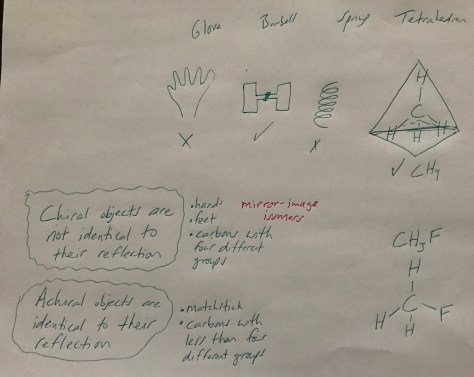 Glove Barbell Spring Tetrahedron
H
C
H H H
X ✓ X ✓ CH4
Chiral objects are
not identical to
their reflection
• hands
• feet
• carbons with
four different
groups
mirror-image
isomers
CH3F
H
C
H H F
Achiral objects are
identical to their
reflection
• matchstick
• carbons with
less than four
different groups